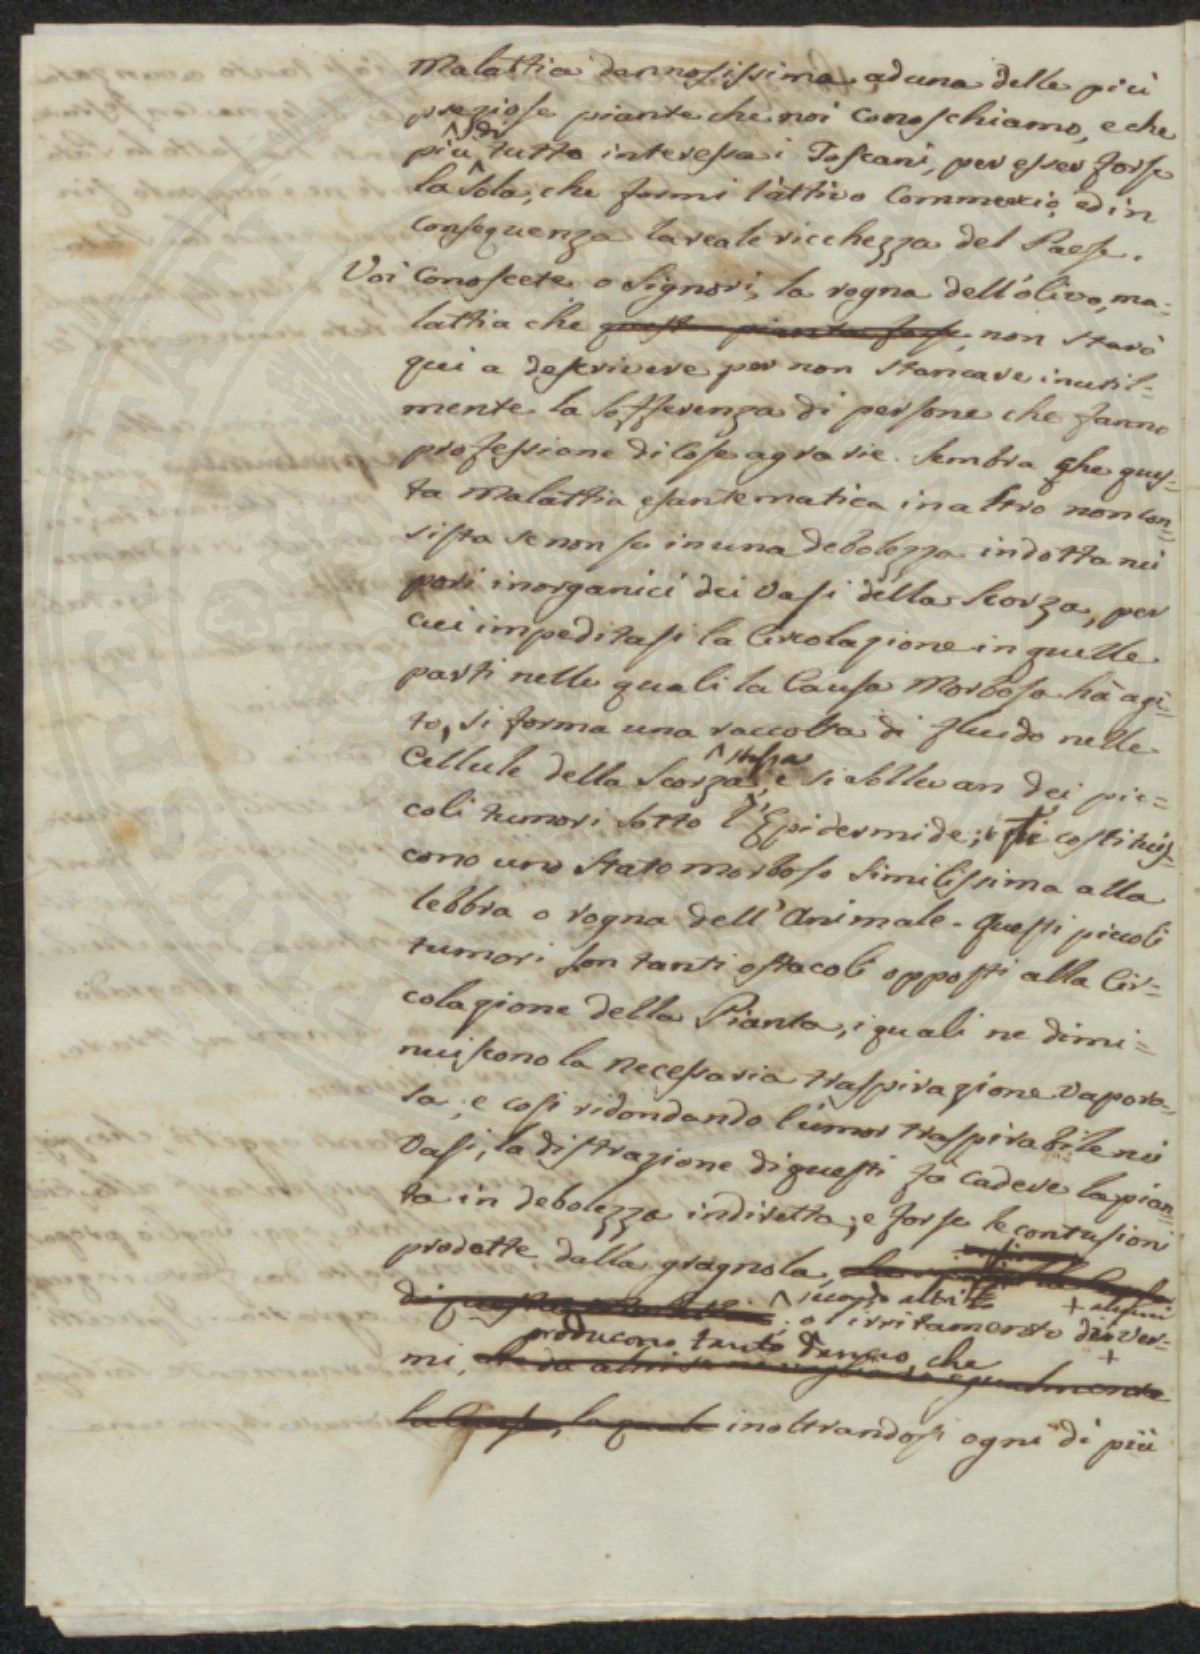 Malattia dannosissima ad una delle più
preziose piante che noi conoschiamo, e che
più di tutto interessa i Toscani, per esser forse
la sola, che formi l'attivo Commercio, ed in
conseguenza la reale ricchezza del Paese.
Voi conoscete o Signori, la rogna dell'olivo, ma-
lattia che questa pianta forse, non starò
qui a descrivere per non stancare inutil-
mente la sofferenza di persone che fanno
professione di cose agrarie. Sembra che ques-
ta Malattia esantematica in altro non con-
sista se non se in una debolezza indotta nei
pori inorganici dei Vasi della Scorza, per
cui impeditasi la Circolazione in quelle
parti nelle quali la Causa Morbosa hà agi-
to, si forma una raccolta di fluido nelle
Cellule della Scorza stessa, e si sollevan dei pic-
coli tumori sotto l'Epidermide; costituis-
cono uno Stato morboso similissima alla
lebbra o rogna dell'Animale. Questi piccoli
tumori son tanti ostacoli opposti alla Cir-
colazione della Pianta, i quali ne dimi-
nuiscono la necessaria traspirazione vaporo-
sa, e così ridondando l'umor traspirabile nei
Vasi, la distrazione di questi fà cadere la pian-
ta in debolezza indiretta; e forse le contusioni
prodotte dalla gragnola,
secondo altri
o l'irritamento di + alcuni ver-
mi, producono tanto danno, che
la Causa, la quale inoltrandosi ogni dì più